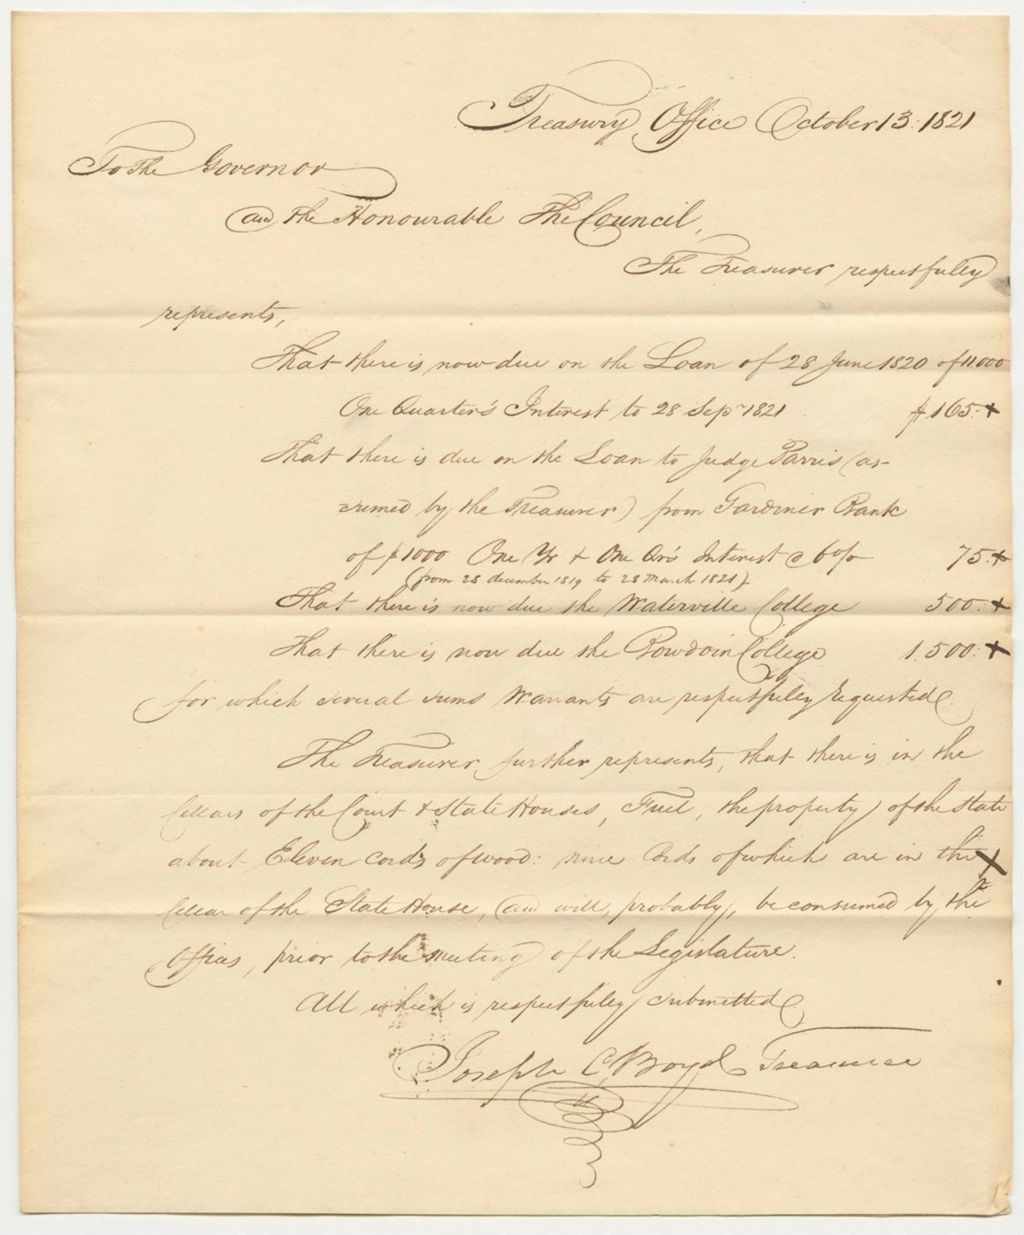 Treasury Office October 13. 1821
To the Governor
and the Honourable The Council,
The Treasurer respectfully
represents,
That there is now due on the Loan of 28 June 1820 of 11000
One Quarter's Interest to 28 Sepr 1821 $165. x
That there is due on the Loan to Judge Parris (as-
sumed by the Treasurer) from Gardiner Bank
of $1000 One Yr & One Qr's Interest @ 6 o/o 75. x
(from 28 december 1819 to 28 March 1821)
That there is now due the Waterville College 500. x
That there is now due the Bowdoin College 1.500. x
for which several sums Warrants are respectfully requested.
The Treasurer further represents, that there is in the
Cellars of the Court & State Houses, Fuel, the property of the State
about Eleven Cords of wood: nine Cords of which are in the x
Cellar of the State House, and will, probably, be consumed by the
Offices, prior to the meeting of the Legislature.
All which is respectfully submitted
Joseph C. Boyd Treasurer